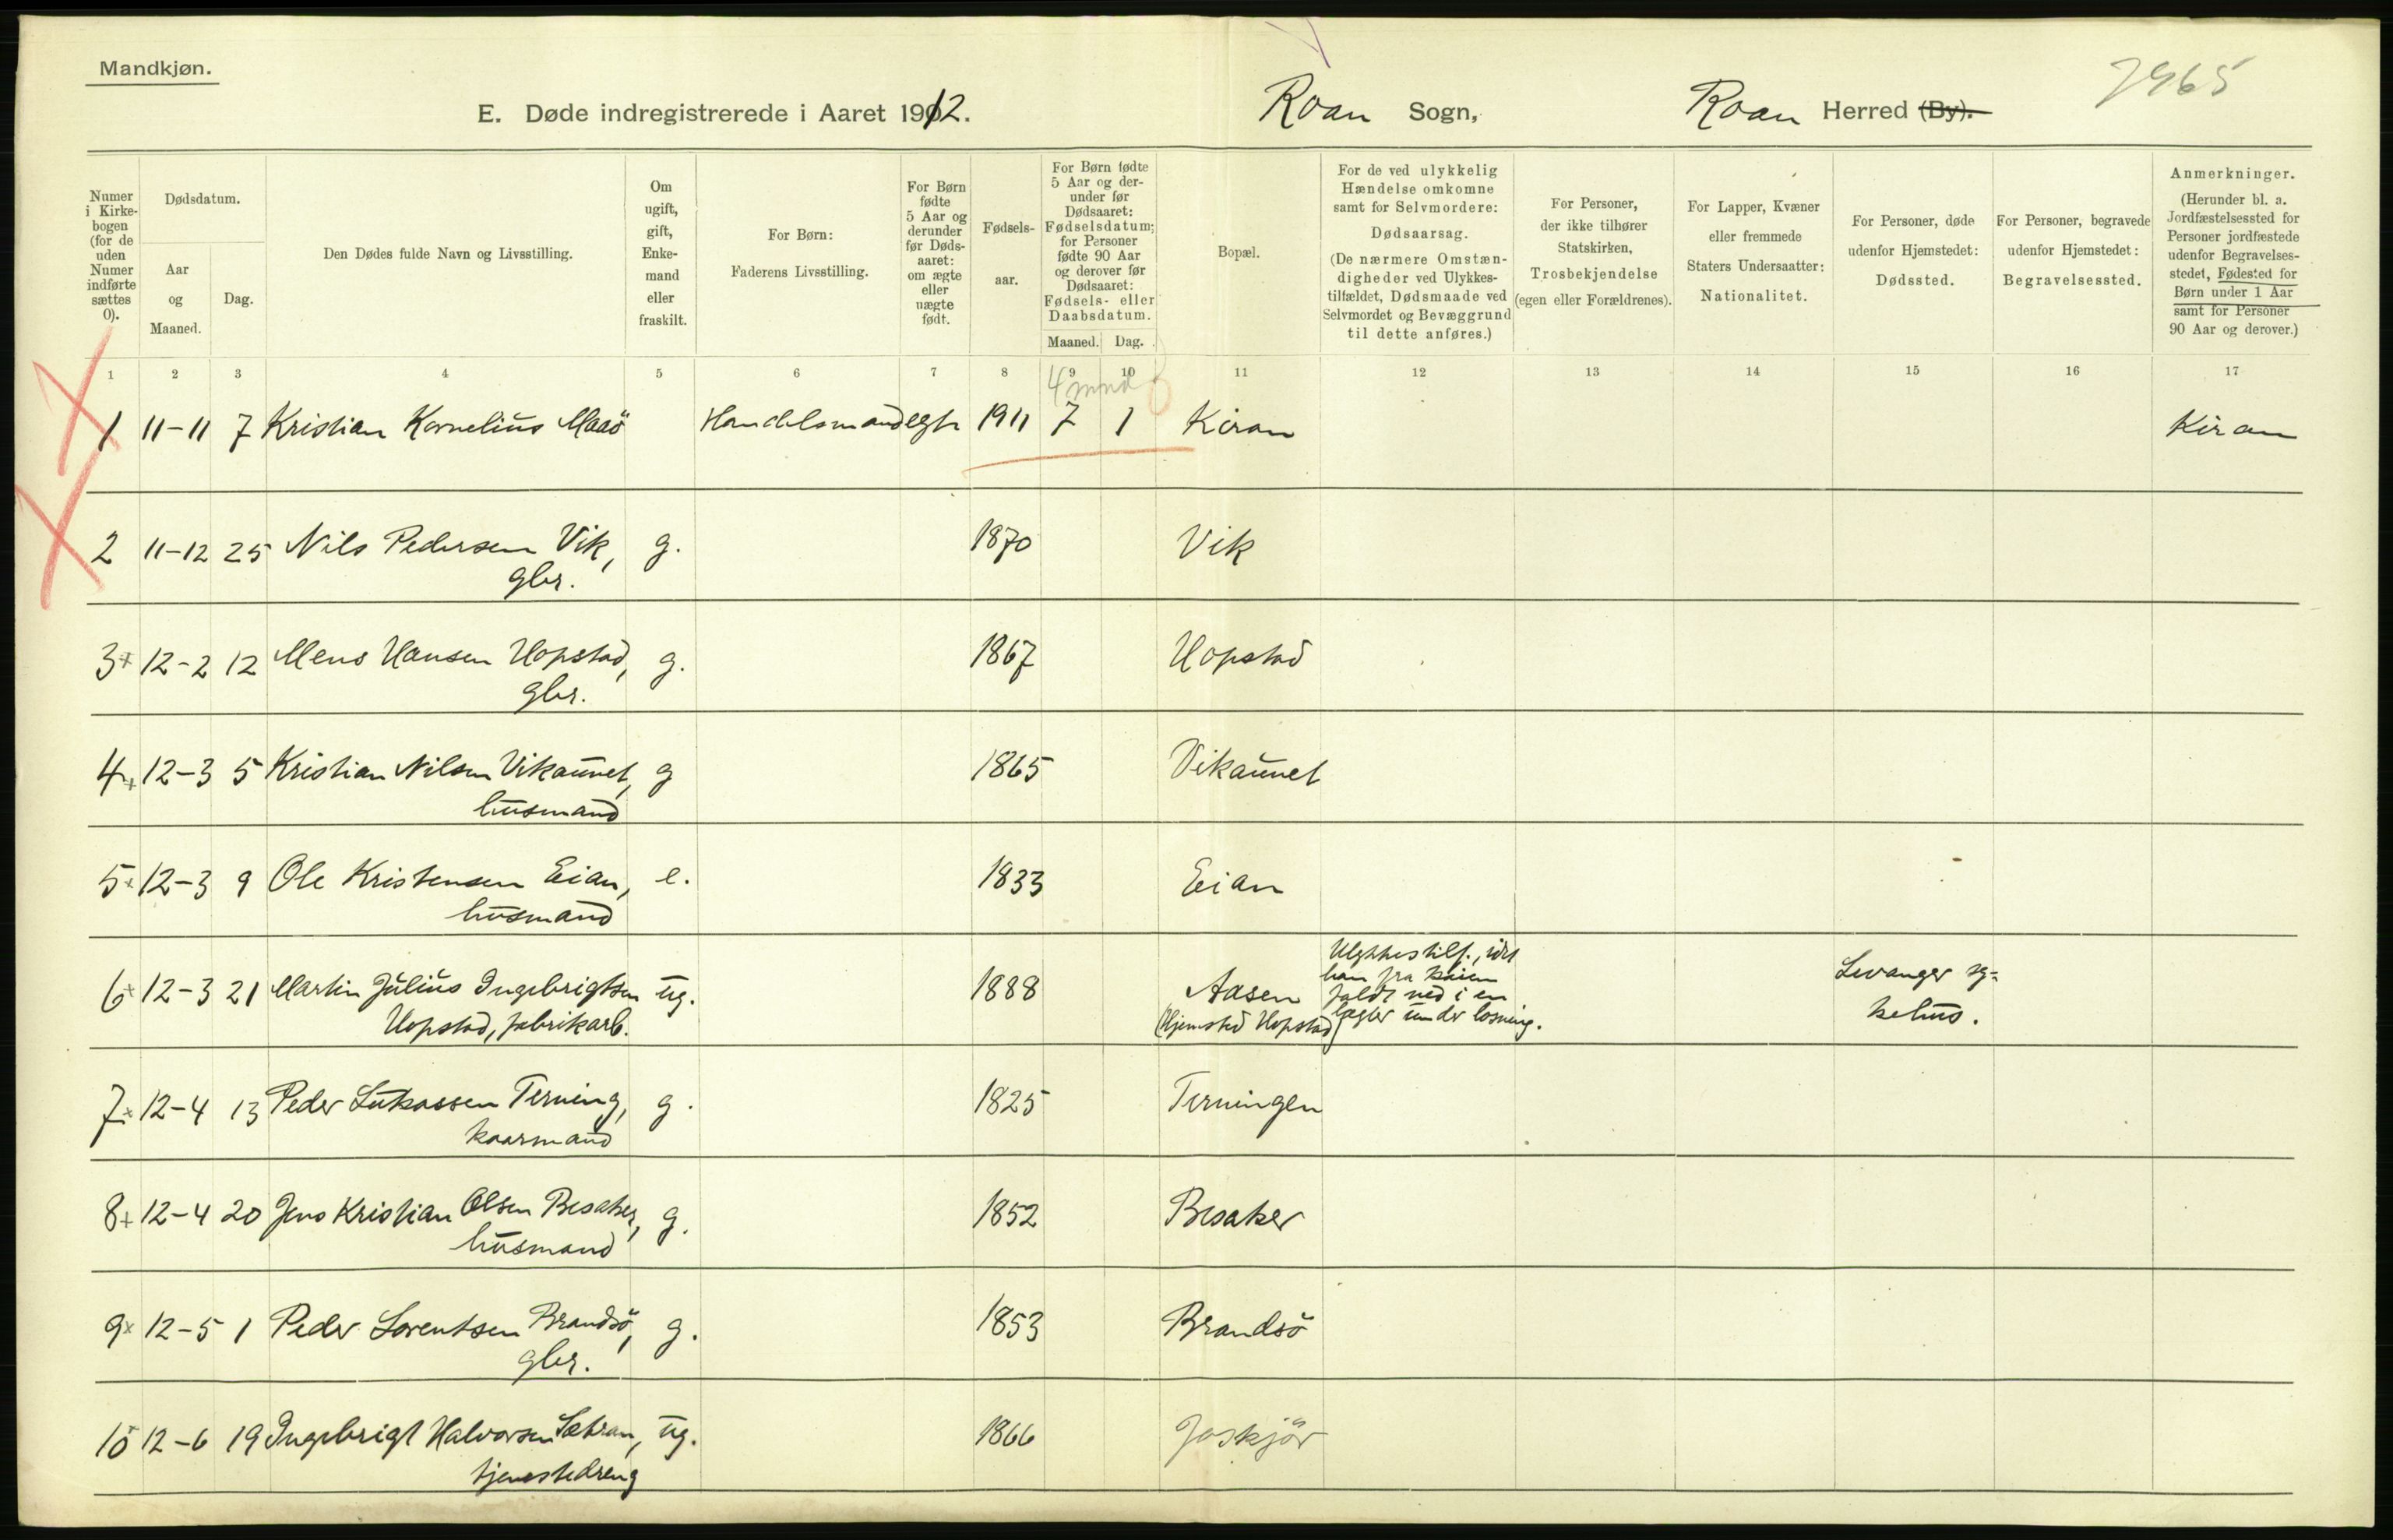 Mandkjøn.
7965
E. Døde indregistrerede i Aaret 1912. Roan Sogn, Roan Herred (By).
Numer i Kirkebogen (for de uden Numer indførte sættes 0).
Dødsdatum.
Aar og Maaned.
Dag.
Den Dødes fulde Navn og Livsstilling.
Om ugift, gift, Enkemand eller fraskilt.
For Børn: Faderens Livsstilling.
For Børn fødte 5 Aar og derunder før Dødsaaret: om ægte eller uægte født.
Fødselsaar.
For Børn fødte 5 Aar og derunder før Dødsaaret: Fødselsdatum; for Personer fødte 90 Aar og derover før Dødsaaret: Fødsels- eller Daabsdatum.
Maaned. Dag.
Bopæl.
For de ved ulykkelig Hændelse omkomne samt for Selvmordere: Dødsaarsag. (De nærmere Omstændigheder ved Ulykkestilfældet, Dødsmaade ved Selvmordet og Bevæggrund til dette anføres.)
For Personer, der ikke tilhører Statskirken, Trosbekjendelse (egen eller Forældrenes).
For Lapper, Kvæner eller fremmede Staters Undersaatter: Nationalitet.
For Personer, døde udenfor Hjemstedet: Dødssted.
For Personer, begravede udenfor Hjemstedet: Begravelsessted.
Anmerkninger. (Herunder bl. a. Jordfæstelsessted for Personer jordfæstede udenfor Begravelsesstedet, Fødested for Børn under 1 Aar samt for Personer 90 Aar og derover.)
1 2 3 4 5 6 7 8 9 10 11 12 13 14 15 16 17
4 mnd
1 11-11 7 Kristian Kornelius Maaö Handelsmand egte 1911 7 1 Kiran Kiran
2 11-12 25 Nils Pedersen Vik, g. 1870 Vik
gbr.
3 12-2 12 Mens Hansen Hopstad, g. 1867 Hopstad
gbr.
4 12-3 5 Kristian Nilsen Vikaunet, g 1865 Vikaunet
husmand
5 12-3 9 Ole Kristensen Eian, e. 1833 Eian
husmand
6 12-3 21 Martin Julius Ingebrigtsen ug. 1888 Aasen Ulykkestilf., idet han fra kaien faldt ned i en lægter under losning. Levanger sy-
Hopstad, fabrikarb. (Hjemsted Hopstad) kehus.
7 12-4 13 Peder Lukassen Terning, g. 1825 Terningen
kaarmand
8 12-4 20 Jens Kristian Olsen Besaker, g. 1852 Besaker
husmand
9 12-5 1 Peder Lorentsen Brandsö, g. 1853 Brandsö
gbr.
10 12-6 19 Ingebrigt Halvorsen Sætran, ug. 1866 Joskjör
tjenestedreng